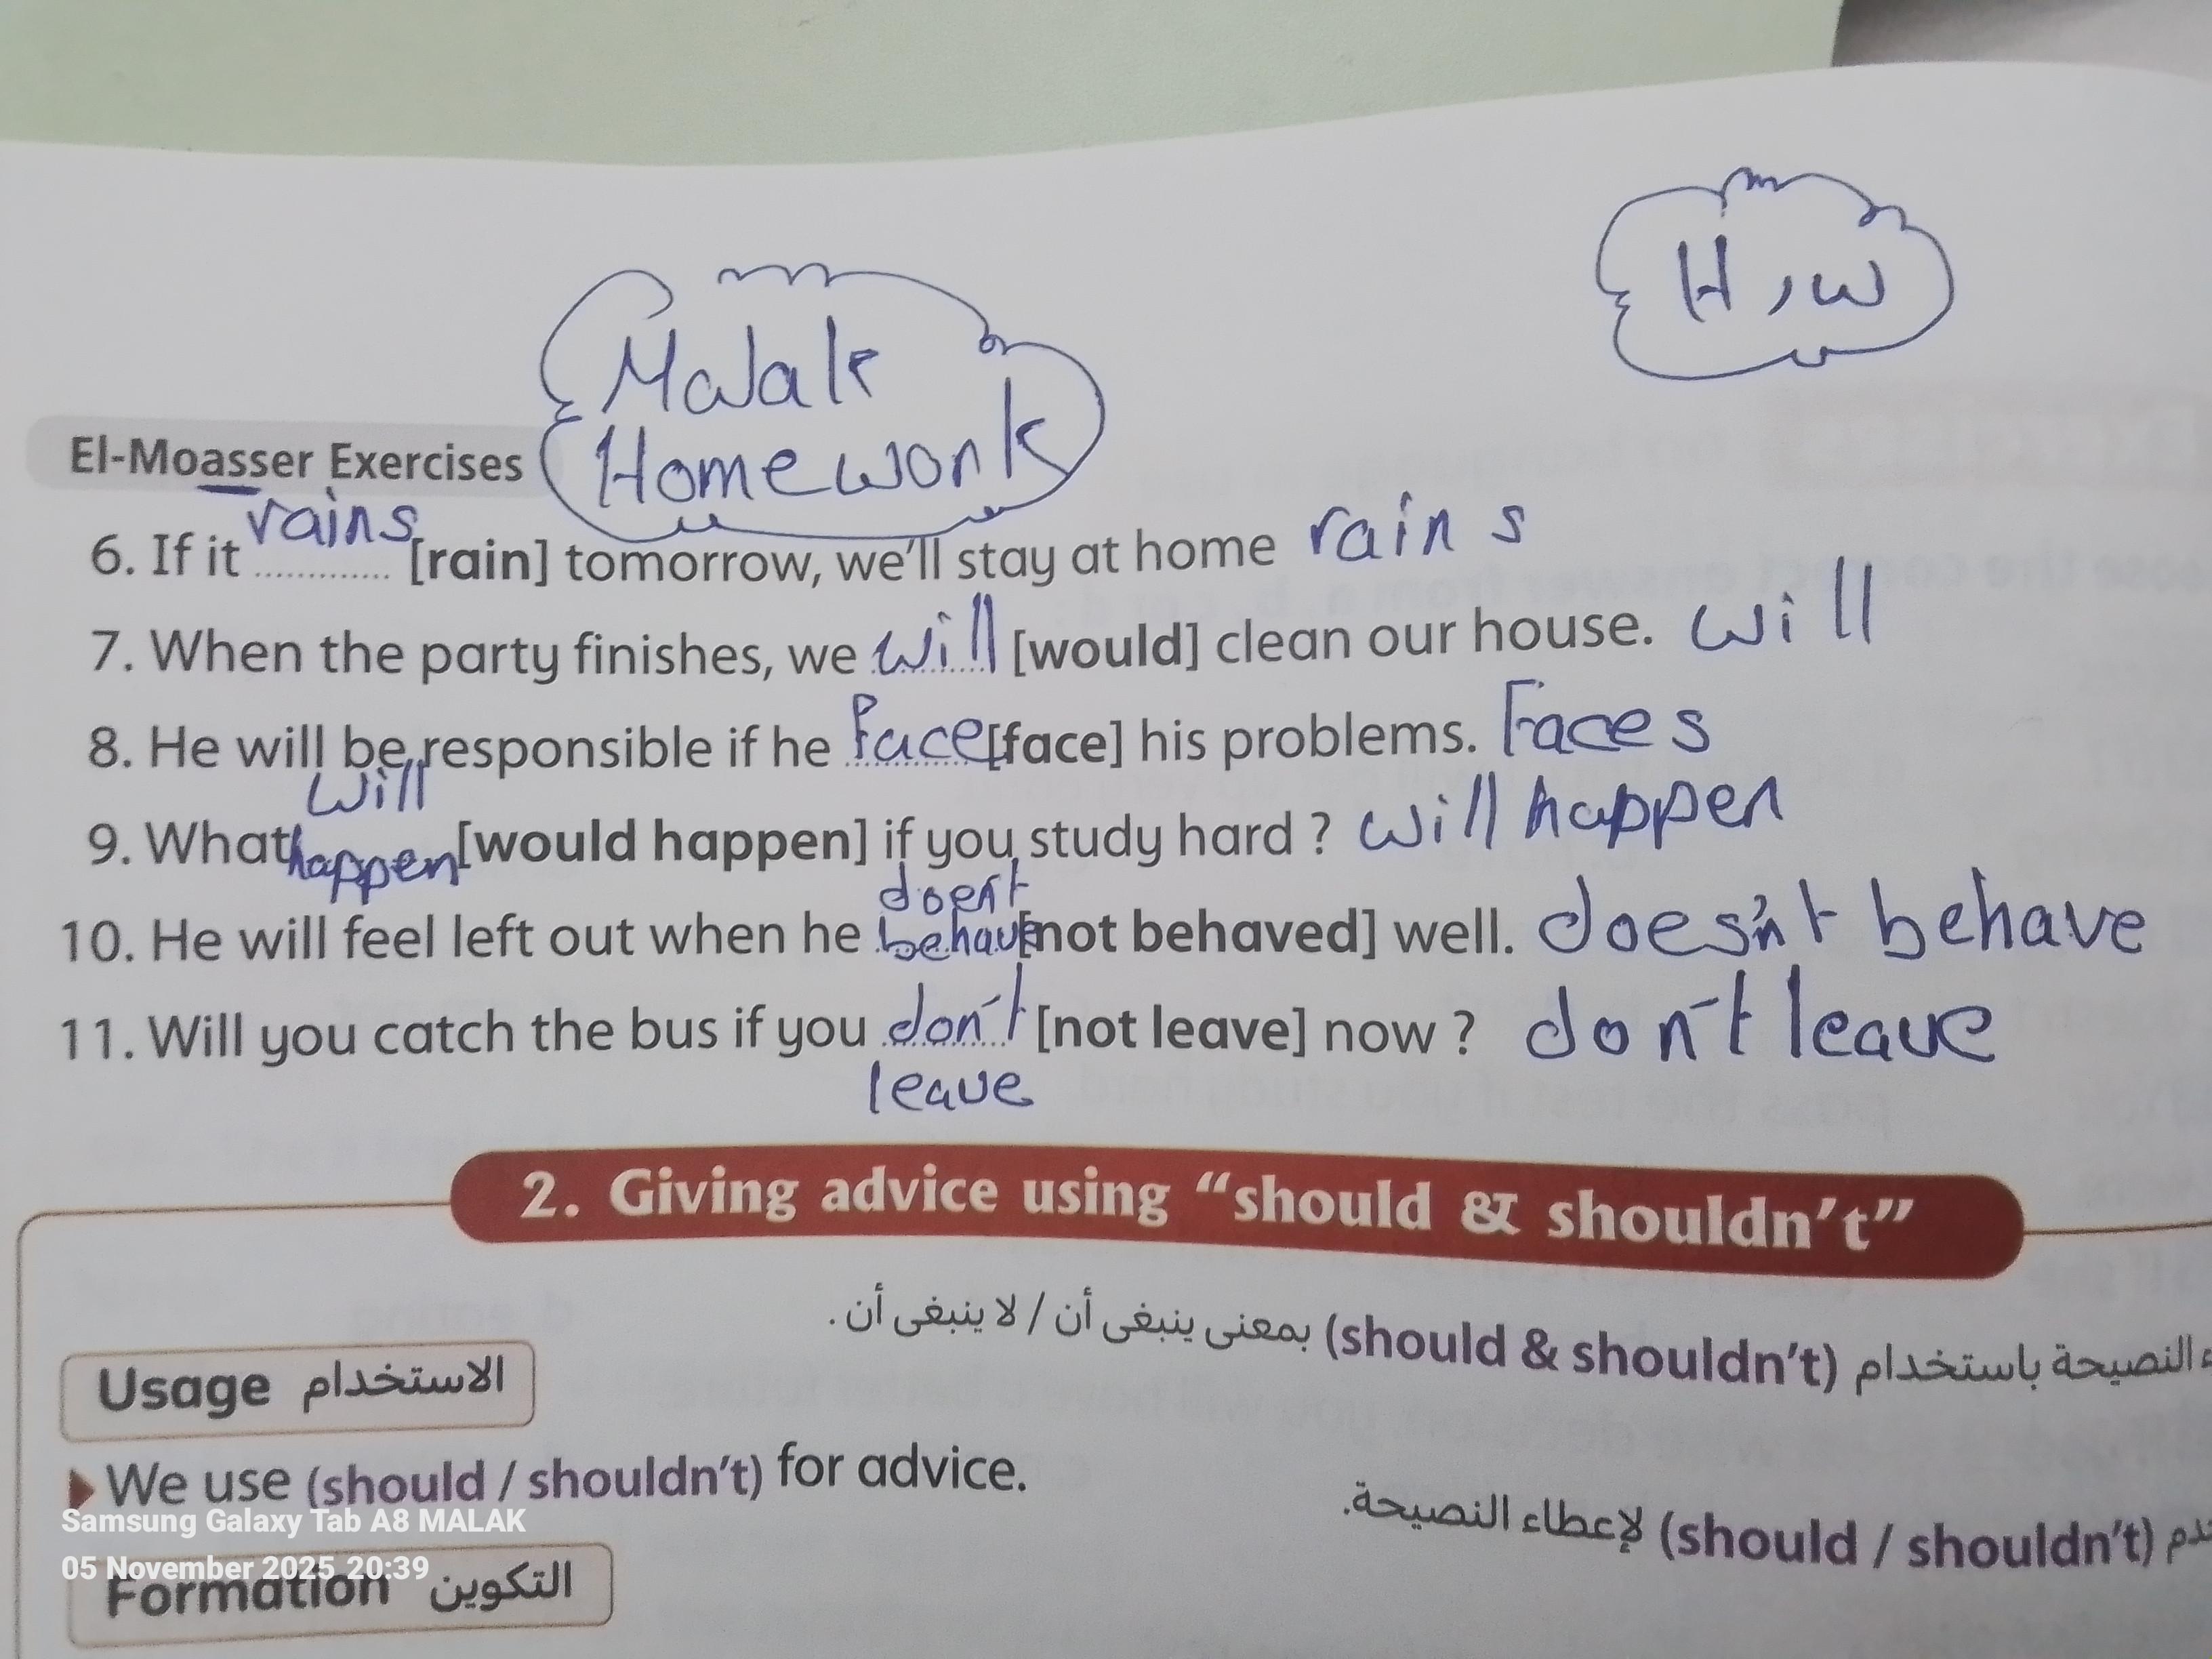 H,w
Malak
Homework
El-Moasser Exercises
6. If it rains [rain] tomorrow, we'll stay at home rains
7. When the party finishes, we will [would] clean our house. will
8. He will be responsible if he face [face] his problems. Faces
9. What will happen [would happen] if you study hard ? will happen
10. He will feel left out when he behave [not behaved] well. doesn't behave
11. Will you catch the bus if you don't leave [not leave] now ? don't leave
2. Giving advice using “should & shouldn't”
النصيحة باستخدام (should & shouldn't) بمعنى ينبغى أن / لا ينبغى أن.
Usage الاستخدام
We use (should / shouldn't) for advice.
(should / shouldn't) لإعطاء النصيحة.
Samsung Galaxy Tab A8 MALAK
05 November 2025 20:39
Formation التكوين